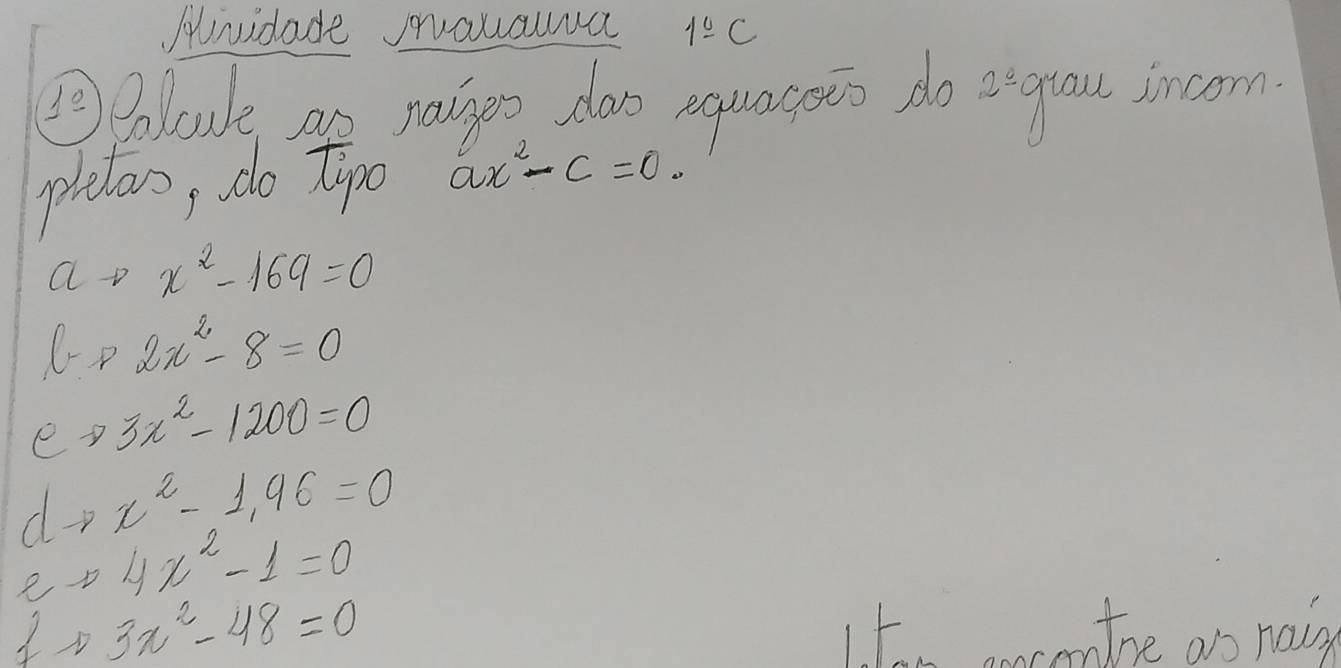 Atividade Avaliativa 1º C
1º) Calcule as raízes das equações do 2º grau incom-
pletas, do Tipo ax² - c = 0.
a → x² - 169 = 0
b → 2x² - 8 = 0
c → 3x² - 1200 = 0
d → x² - 1,96 = 0
e → 4x² - 1 = 0
f → 3x² - 48 = 0
encontre as raíz